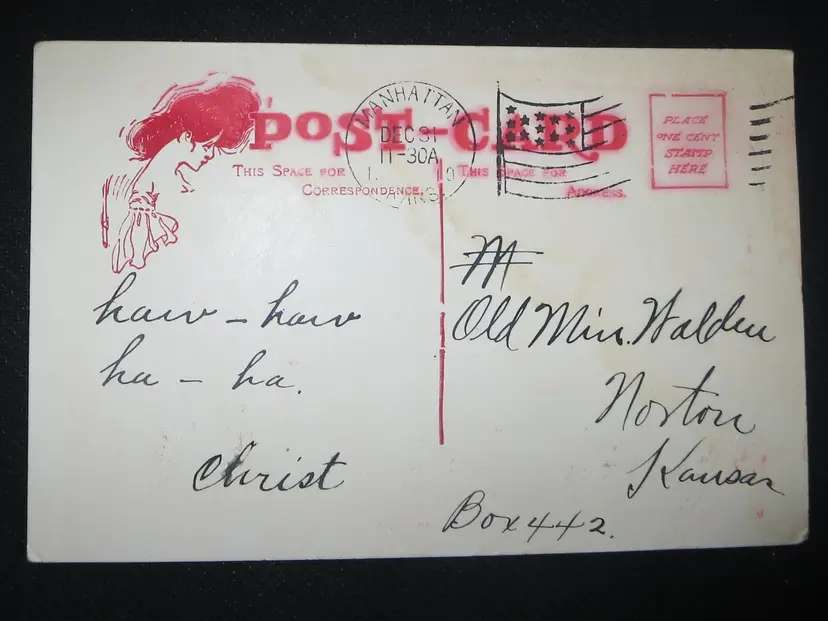 POST-CARD
MANHATTAN
DEC 31
11-30A
KANS.
THIS SPACE FOR
CORRESPONDENCE.
THIS SPACE FOR
ADDRESS.
PLACE
ONE CENT
STAMP
HERE
haw – haw
ha – ha.
Christ
M
Old Min. Walden
Norton
Kansas
Box 442.